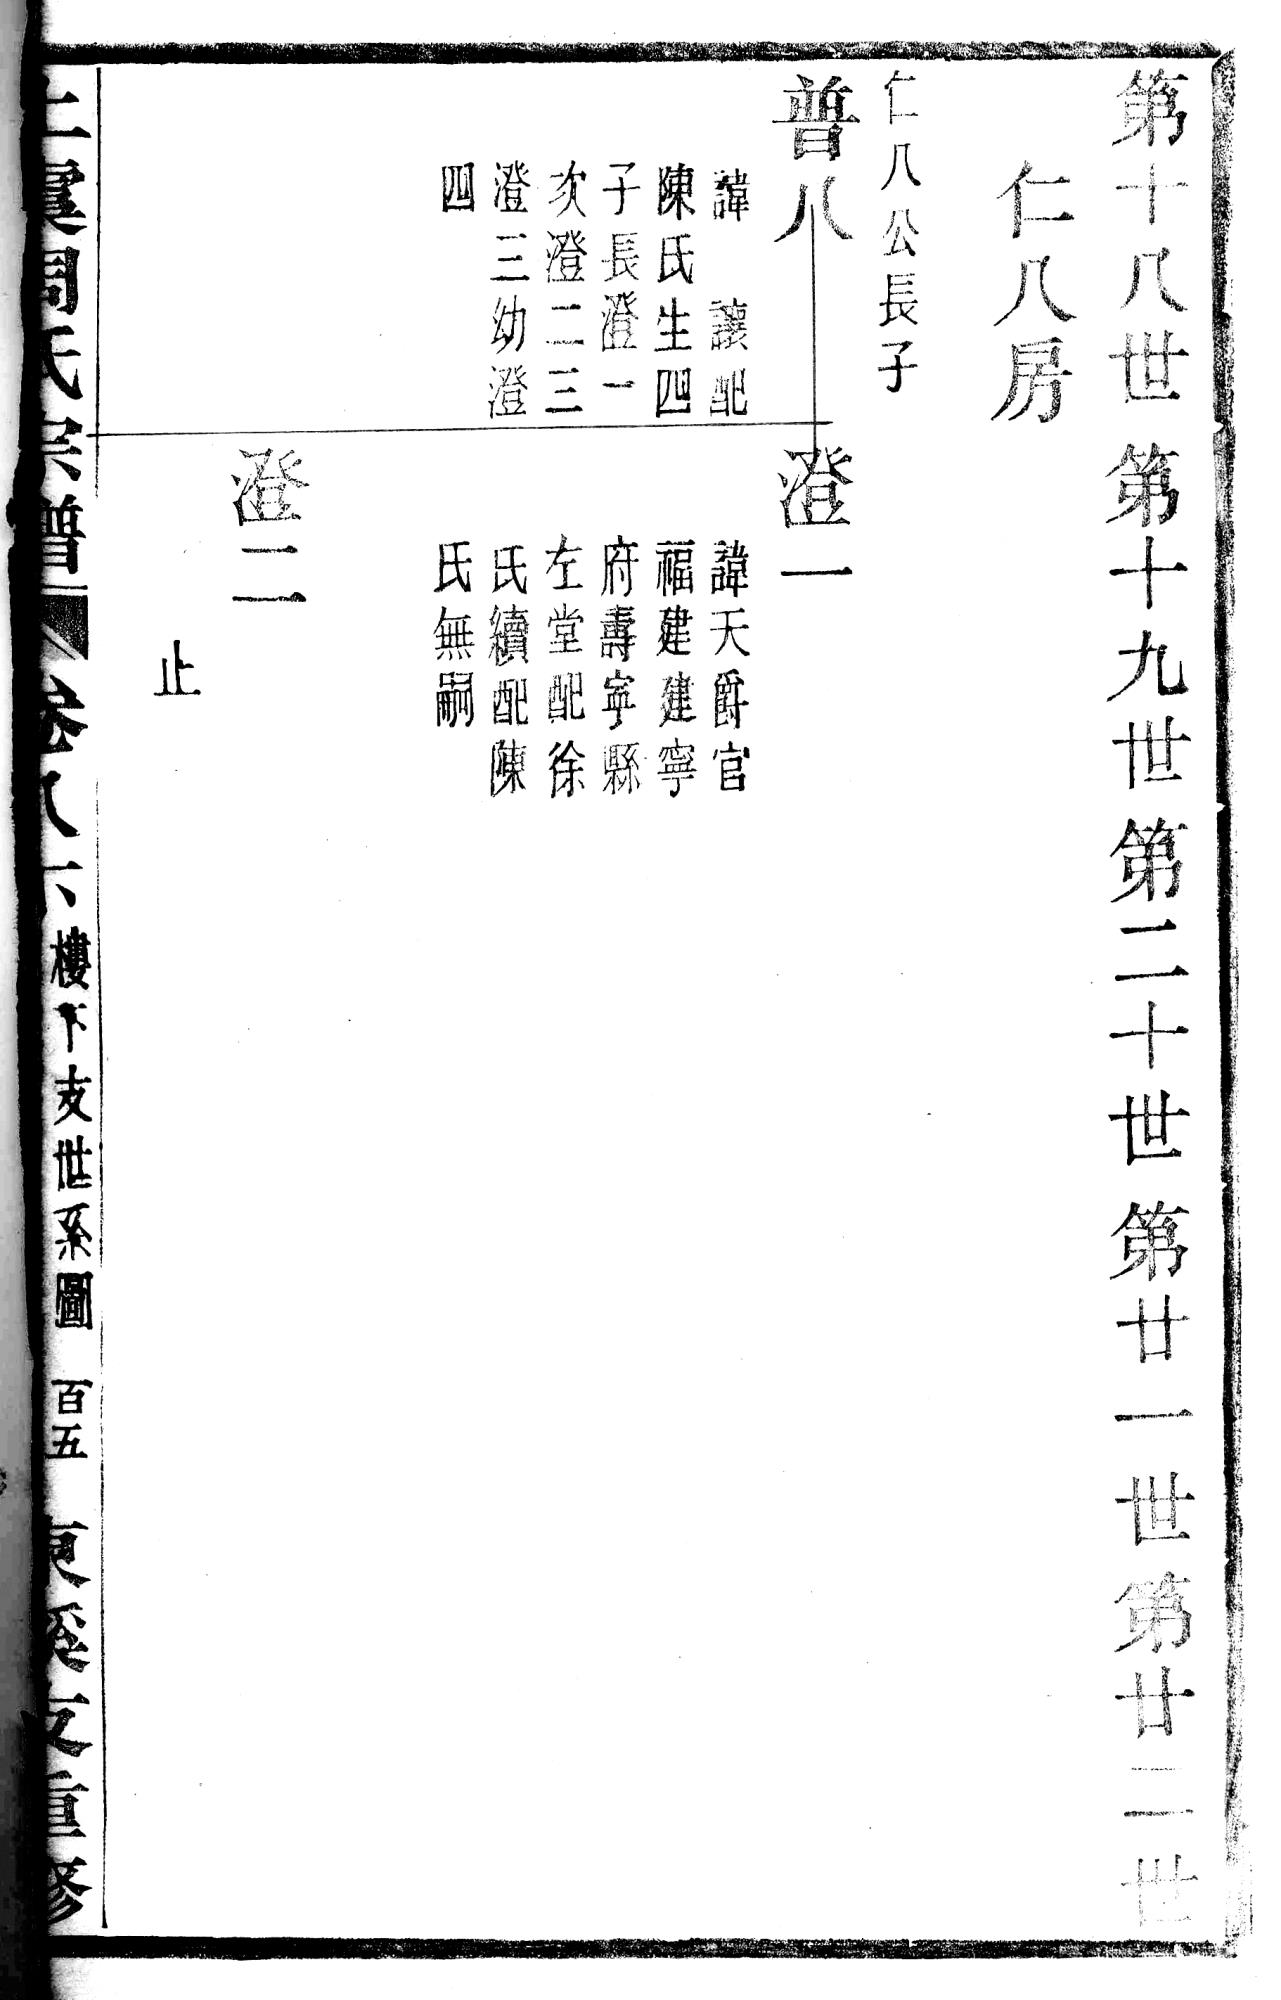 第十八世 第十九世 第二十世 第廿一世 第廿二世
仁八房
仁八公長子
普八
諱 讓配
陳氏生四
子長澄一
次澄二三
澄三幼澄
四
澄一
諱天爵官
福建建寧
府壽寧縣
左堂配徐
氏續配陳
氏無嗣
澄二
止
上虞周氏宗譜 卷八六 樓下支世系圖 百五 東溪支重修